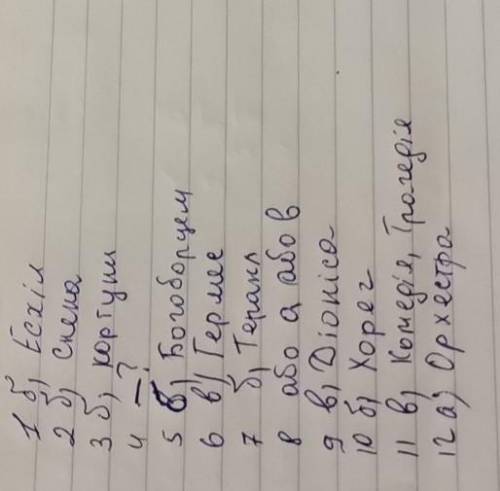 1 б) Есхіл
2 б) Скена
3 б) кортуни
4 —?
5 б) Богоборцем
6 в) Гермес
7 б) Геракл
8 або а, або в
9 в) Діоніса
10 б) Хорег
11 в) Комедія, Трагедія
12 а) Орхестра